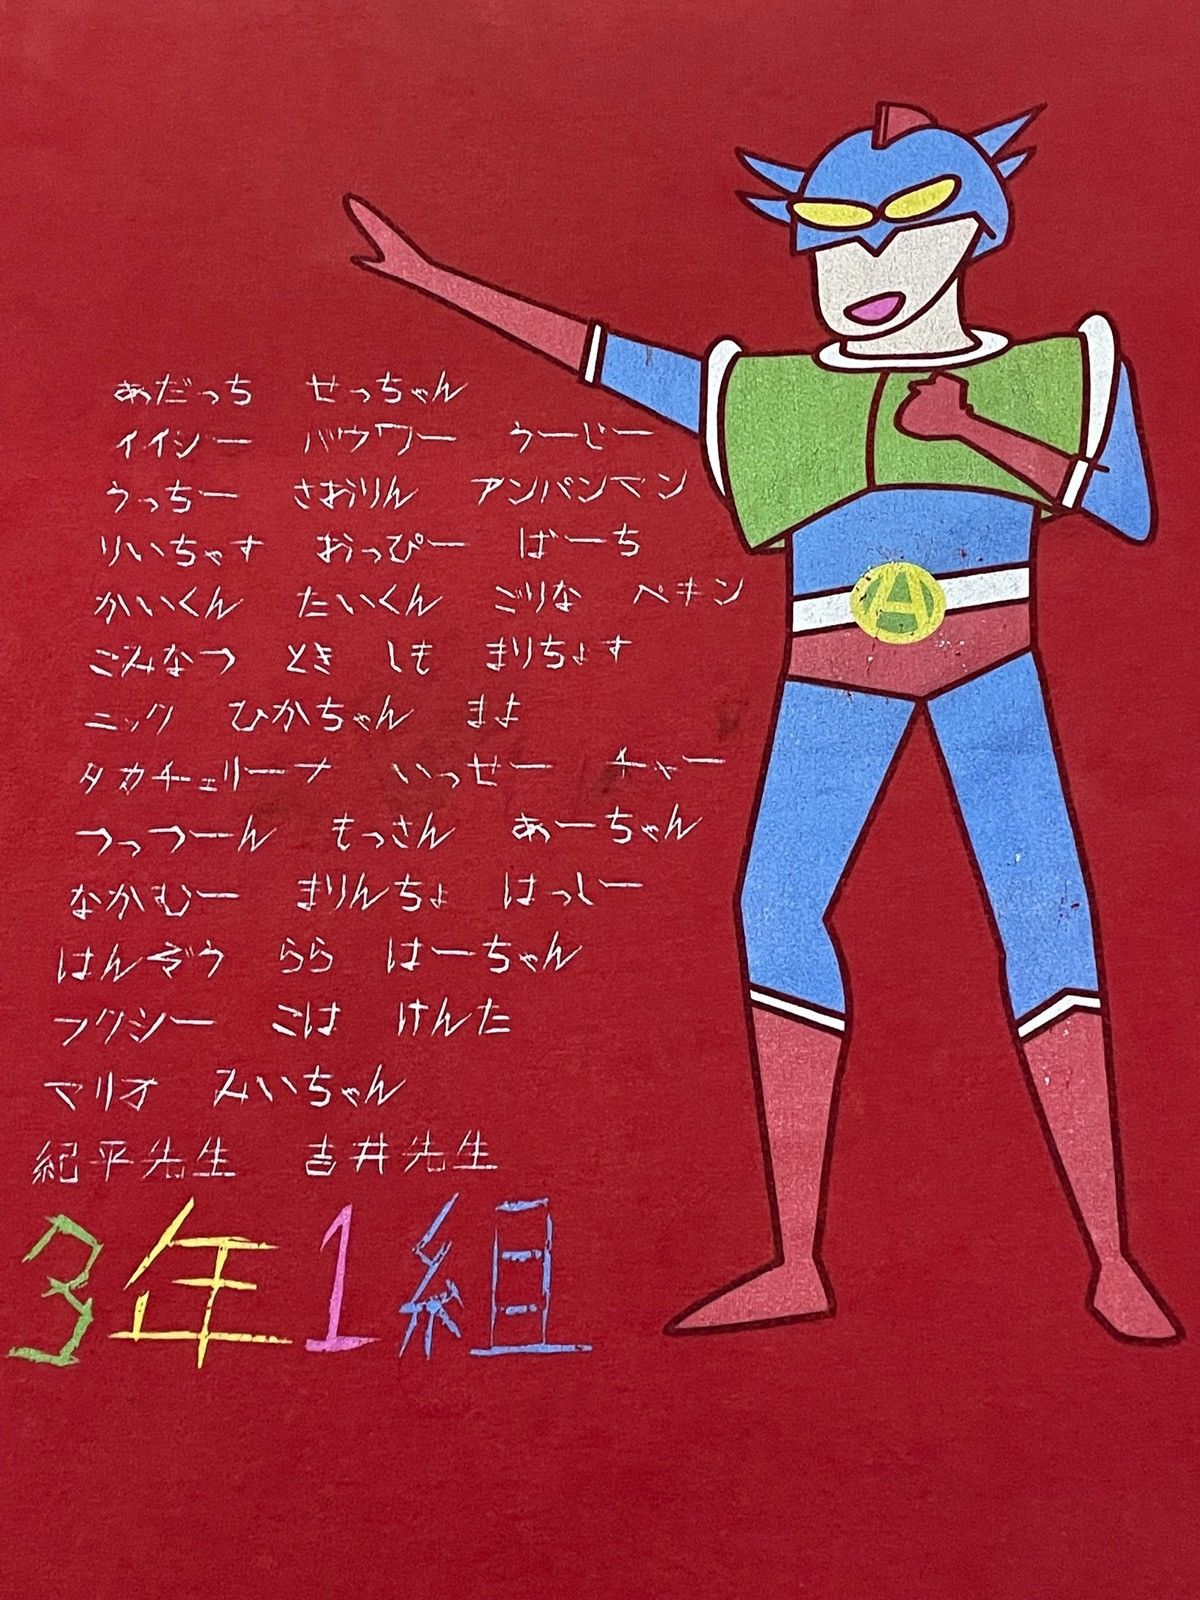 あだっち せっちゃん
イイジー バウワー うーじー
うっちー さおりん アンパンマン
りいちゃす おっぴー ばーち
かいくん たいくん ごりな ペキン
ごみなつ とき しも まりちょす
ニック ひかちゃん まよ
タカチェリーナ いっせー チャー
つっつーん もっさん あーちゃん
なかむー まりんちょ はっしー
はんぞう らら はーちゃん
フクシー こは けんた
マリオ みいちゃん
紀平先生 吉井先生
3年1組
A